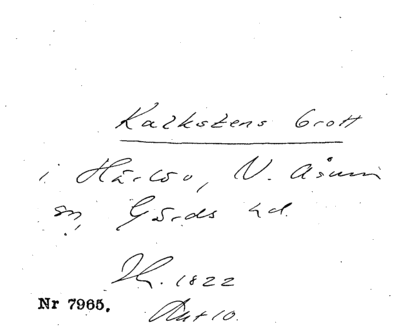 Kalkstens Grott
i Härlöv, N. Åsum
sn, Gärds hd.
1822
Nr 7965.